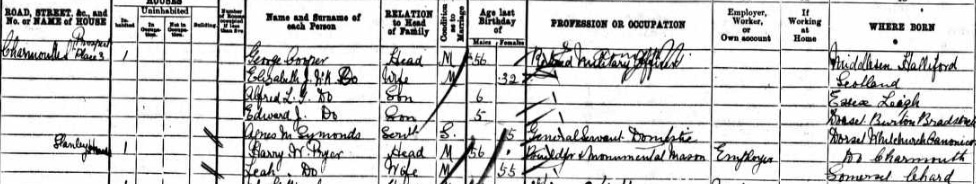 ROAD, STREET, &c., and No. or NAME of HOUSE HOUSES In-habited Uninhabited In Occupa-tion. Not in Occupa-tion. Building Name and Surname of each Person RELATION to Head of Family Condition as to Marriage Age last Birthday of Males Females PROFESSION OR OCCUPATION Employer, Worker, or Own account If Working at Home WHERE BORN
Charmouth Prospect Place 3 1 George Cooper Head M 56 Retired Military Officer Middlesex Halliford
Elizabeth J. Do Wife M 32 Scotland
Alfred L. G. Do Son 6 Essex Leigh
Edward J. Do Son 5 Dorset Burton Bradstock
Agnes M. Symonds Servt S. General Servant Domestic Dorset Whitchurch Canonicorum
Stanley House 1 Harry W. Pryer Head M 56 Builder & Monumental Mason Employer Do Charmouth
Leah Do Wife M 55 Somerset Chard